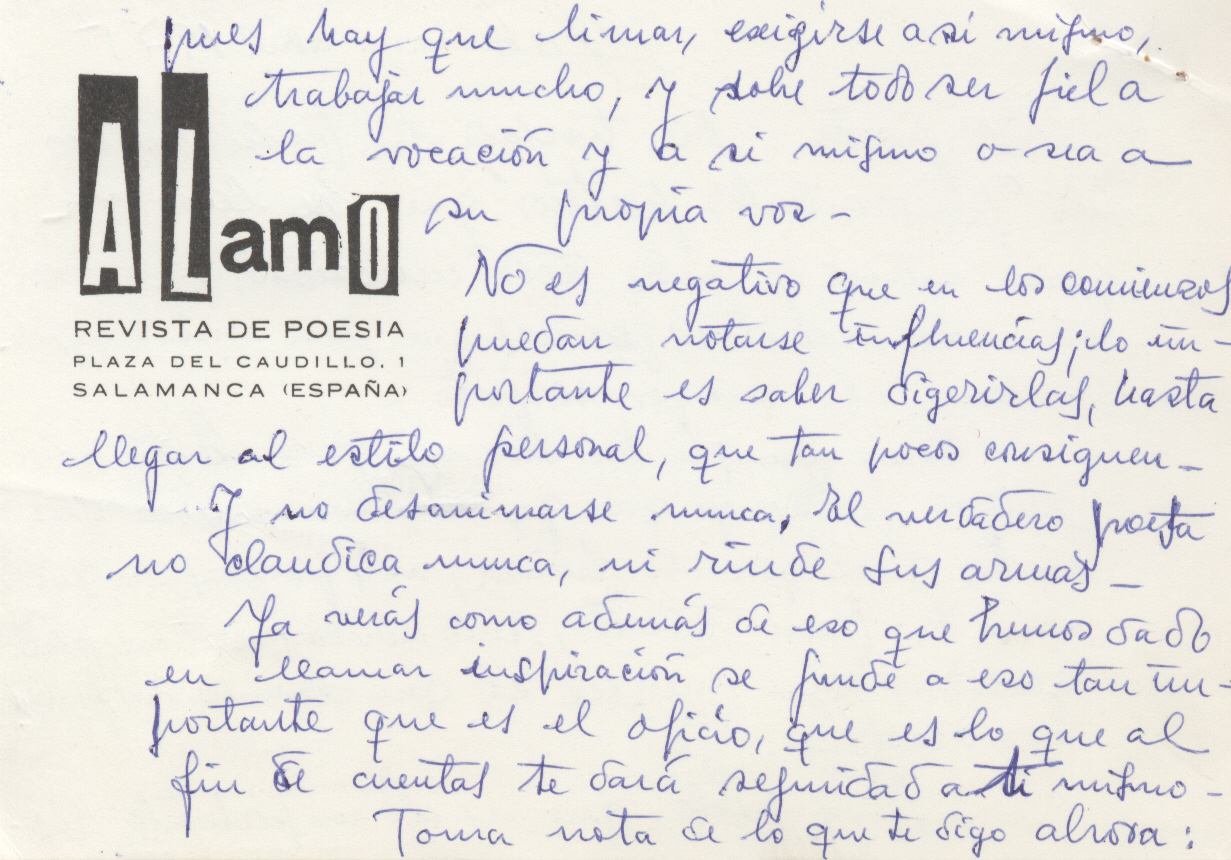 pues hay que limar, exigirse a si mismo,
trabajar mucho, y sobre todo ser fiel a
la vocación y a si mismo o sea a
su propia voz -
ALamO
REVISTA DE POESIA
PLAZA DEL CAUDILLO, 1
SALAMANCA (ESPAÑA)
No es negativo que en los comienzos
puedan notarse influencias; lo im-
portante es saber digerirlas, hasta
llegar al estilo personal, que tan pocos consiguen -
Y no desanimarse nunca. El verdadero poeta
no claudica nunca, ni rinde sus armas -
Ya verás como además de eso que hemos dado
en llamar inspiración se funde a eso tan im-
portante que es el oficio, que es lo que al
fin de cuentas te dará seguridad a ti mismo -
Toma nota de lo que te digo ahora: